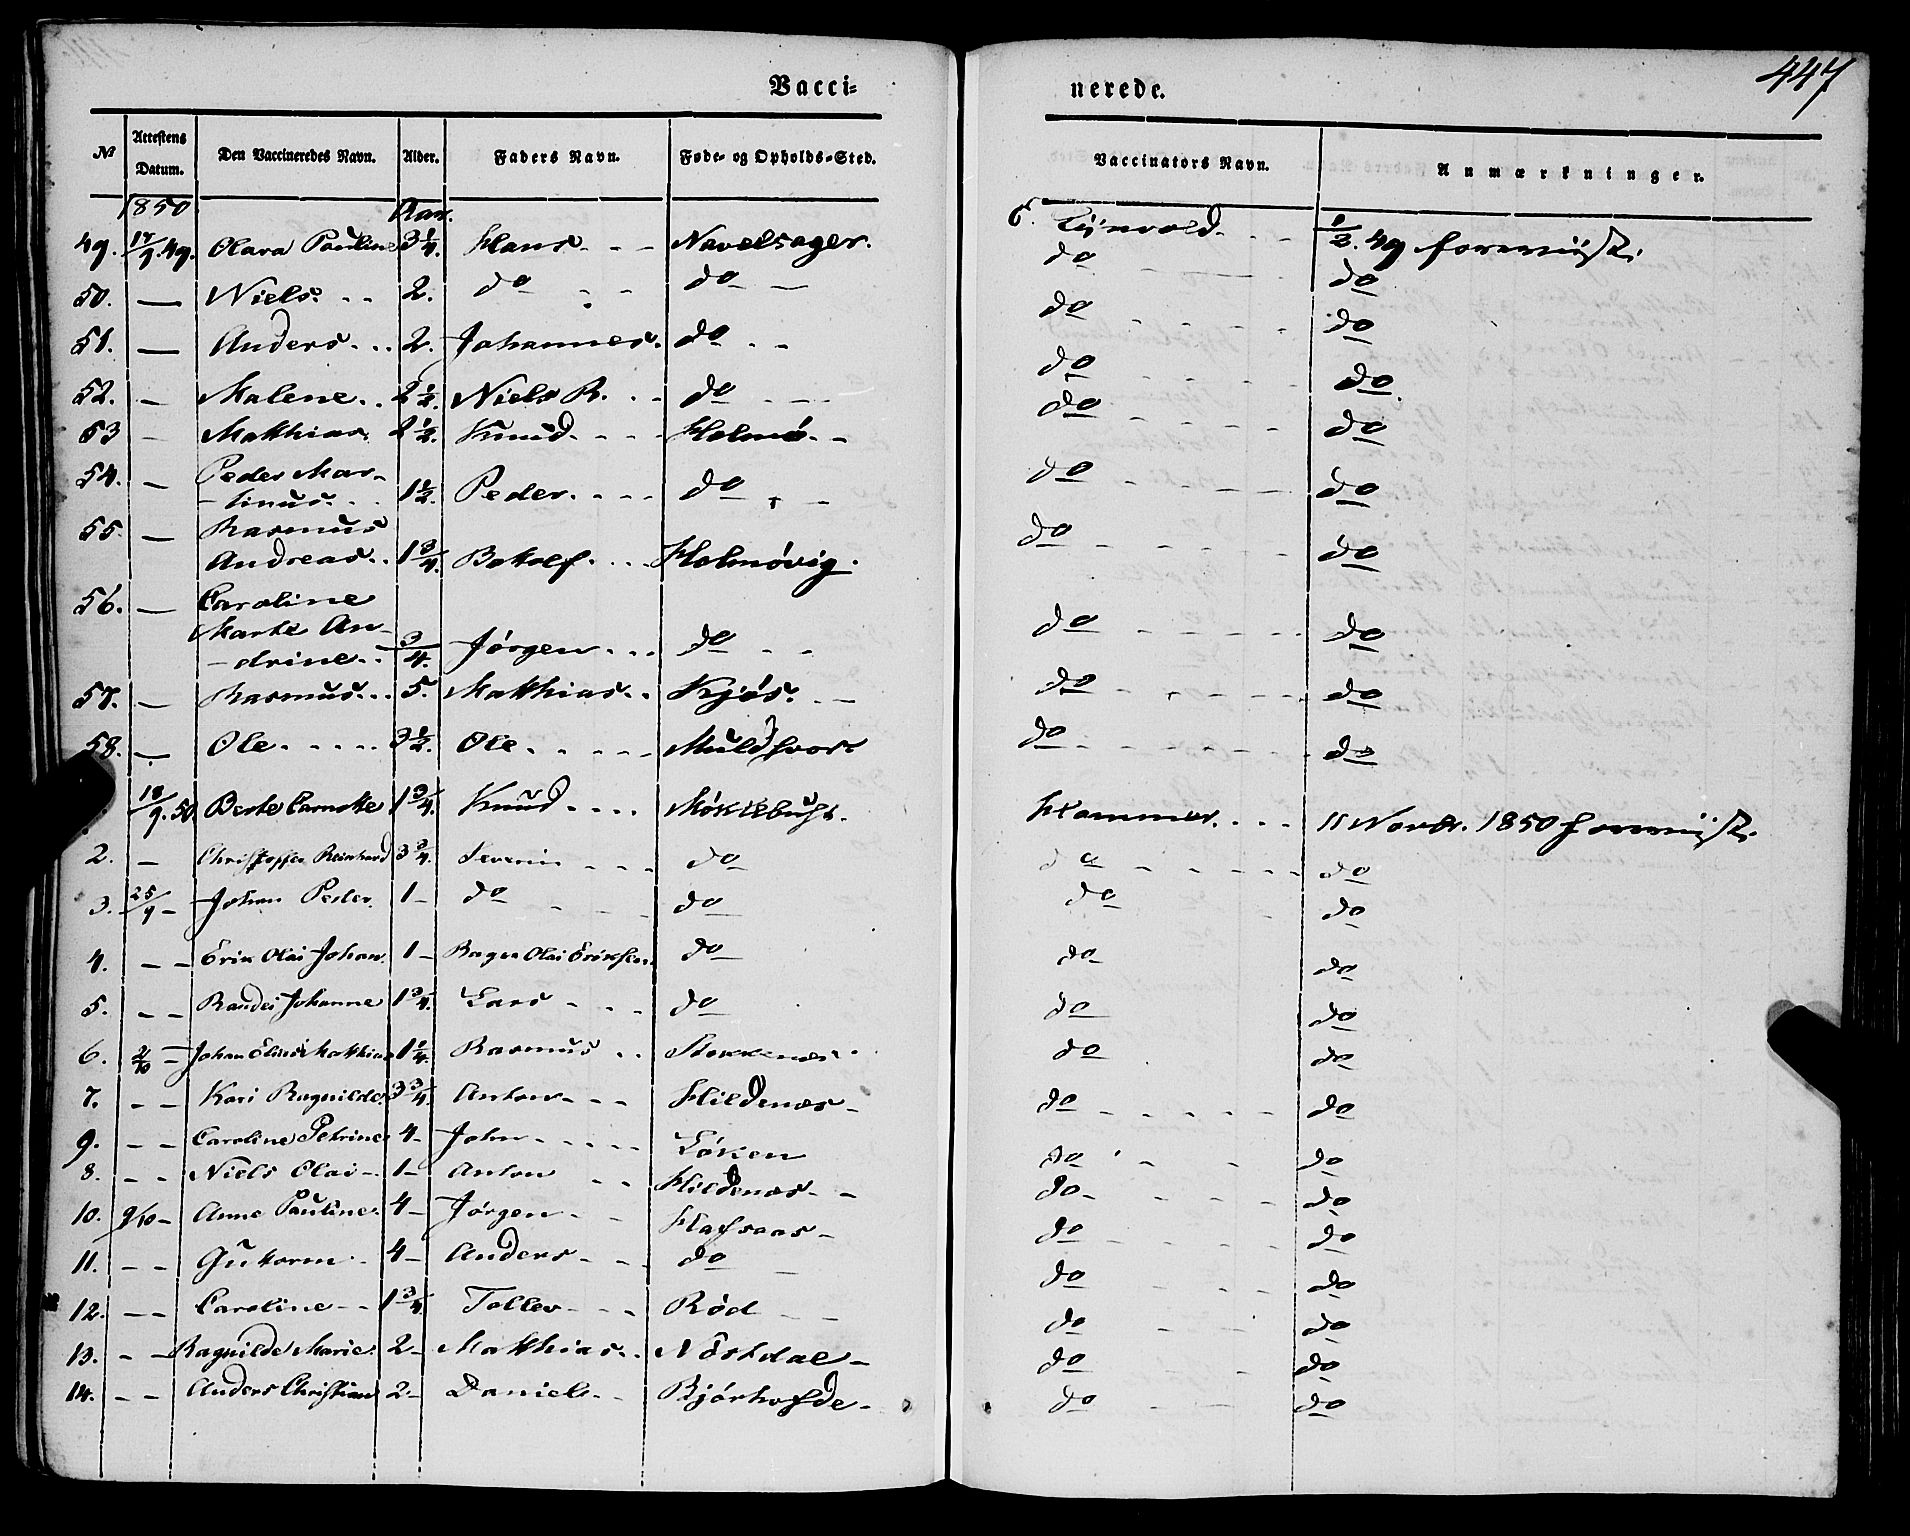 447
Vacci-
nerede.
No Attestens Datum. Den Vaccineredes Navn. Alder. Faders Navn. Føde- og Opholds-Sted. Vaccinators Navn. Anmærkninger.
1850 Aar.
49. 17/9. 49. Olara Pauline 3 1/4. Hans - - Navelsager. 49
50. — Niels. - - 2. do - - do - do - do
51. — Anders. - - 2. Johannes. do - - do - - - do
52. — Malene. - - 2 1/2. Niels R. - - do - - - do - - - do
53 — Matthias. 2 1/2. Knud. - - - Holmø. - do - - - do
54. — Peder Mar-
-tinus. - - 1 1/2. Peder. - - - do - do - - - do
55. — Rasmus
Andreas. - - 1 3/4. Botolf. - - - Holmøvig. do - - - do
56. — Caroline
Marte An-
-drine. - - 3/4. Jørgen. - - - do - - do - - - do
57. — Rasmus. - - 5. Matthias. - Kjøs. - - do - - - do
58. — Ole. - - - - 3 1/2. Ole. - - - - Muldsvor do - - - do
18/9. 50. Berte 1 3/4. Knud - - - - Møklebust. Hammer. - - - 11 Novbr. 1850
2. — Christoffer Reinhard 3 3/4. Severin - - - do do - - - do
3. 25/9 - Johan Peder. 1 - do - - - do do - do
4. - - Erik Olai Johan. 1 - Olai Eriksen. do do do
5. - - Randei Johanne 1 3/4. Lars - - - do do do
6. 2/10 - Johan Matthias 1 1/4. Rasmus - - Stokkenæs. do do
7. - - Kari Ragnilde. 3 3/4. Anton - - - Hildenæs - do - - - do
9. - - Caroline Petrine 4 - John - - - - Løken do - - do
8. - - Niels Olai - 1 - Anton - - Hildenæs - - do - - - do
10. 9/10 - Anne Pauline. 4 - Jørgen - - Hafsaas - do - - - do
11. - - Guttorm - 4 - Anders - - - do - do - - - do
12. - - Caroline - - 1 3/4 Tollev - - - Rød - - do - - do
13. - - Ragnilde Marie 2 - Matthias. - Nøstdal - do - - do
14. - - Anders Christian 2. - Daniel. - - do - - do